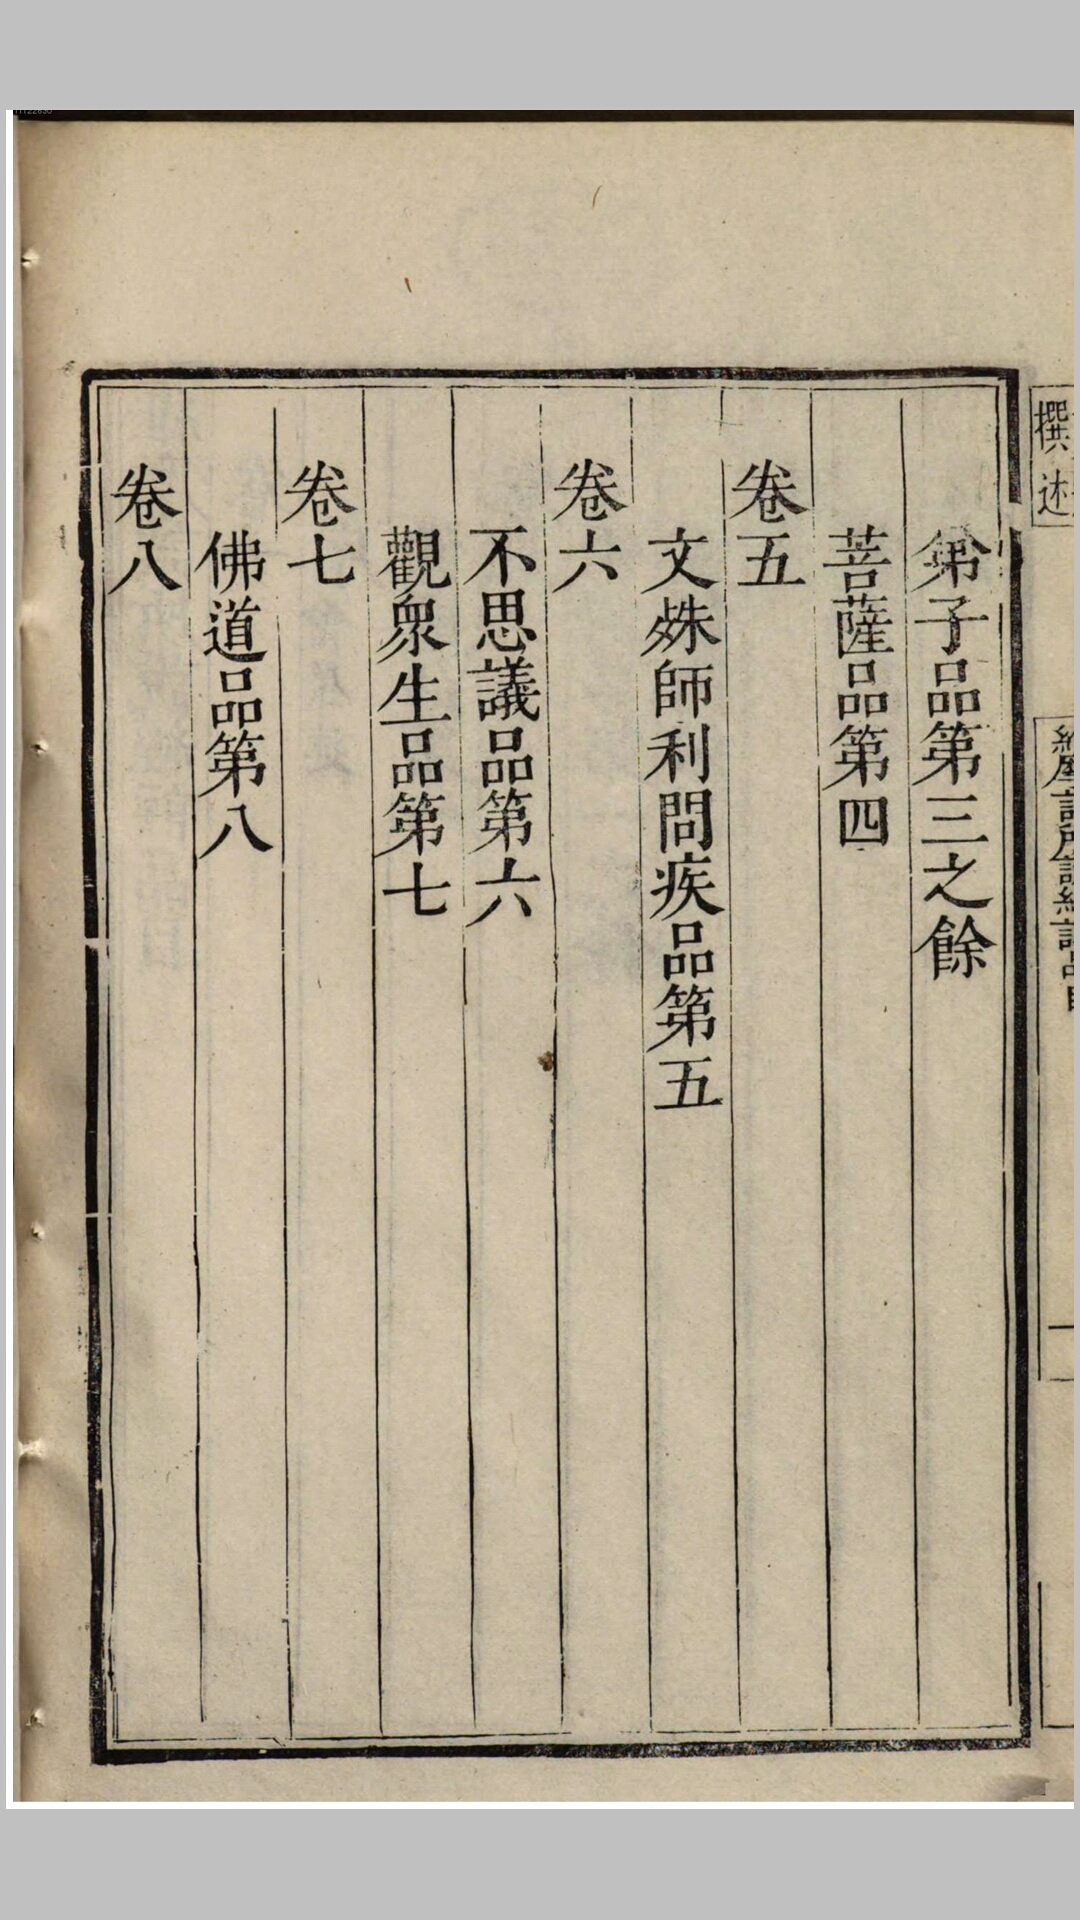 弟子品第三之餘
菩薩品第四
卷五
文殊師利問疾品第五
卷六
不思議品第六
觀衆生品第七
卷七
佛道品第八
卷八
撰述